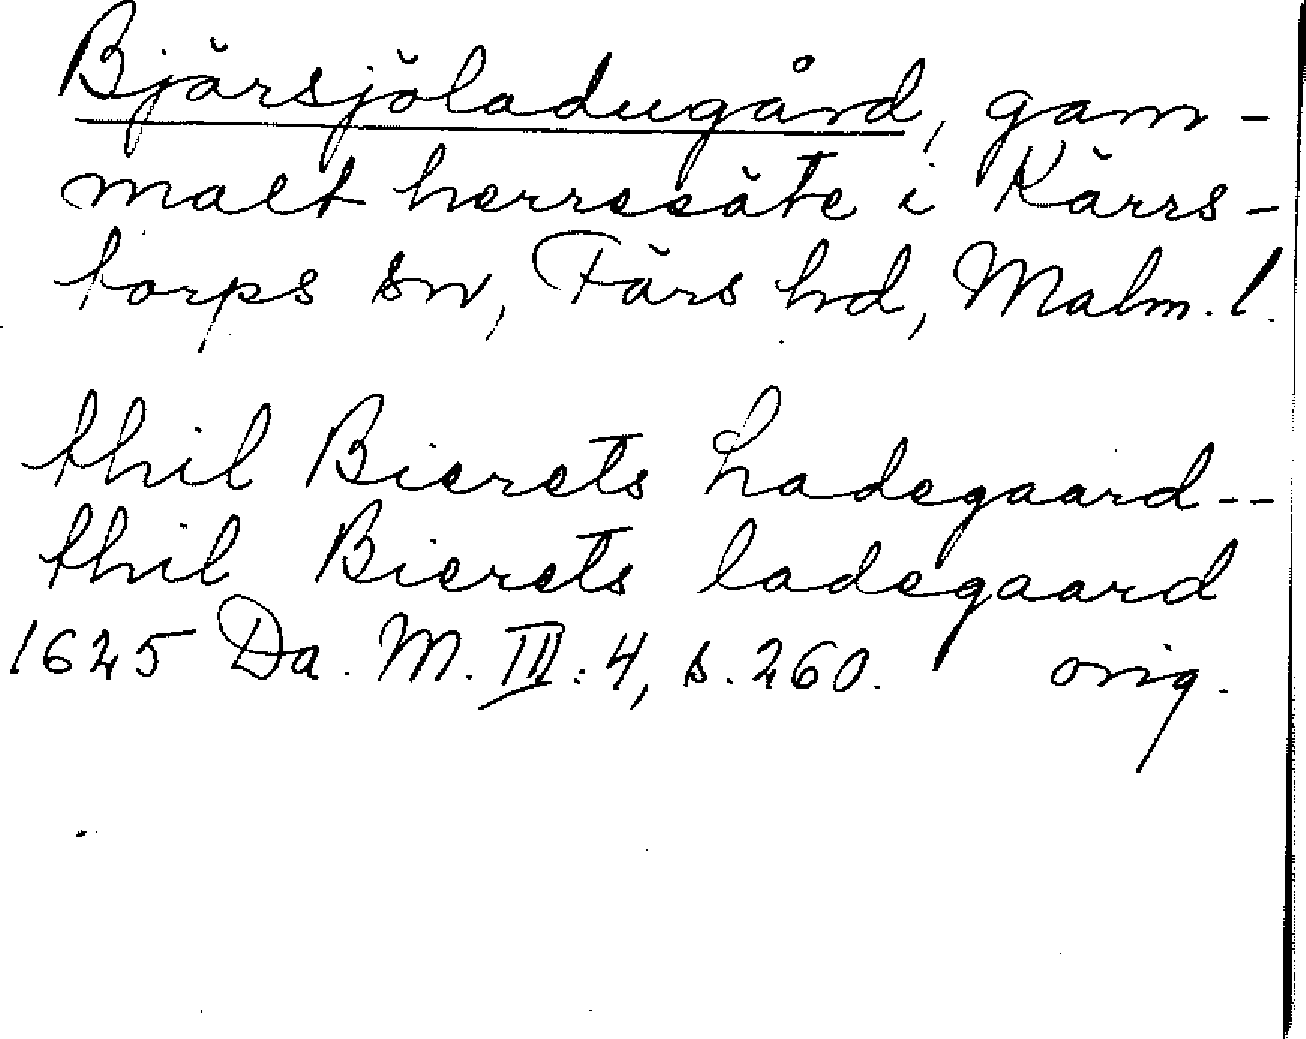 Bjärsjöladugård, gam-
malt herresäte i Kärrs-
torps sn, Färs hd, Malm. l.
thil Bierets Ladegaard--
thil Bierets ladegaard
1625 Da. M. III: 4, s. 260. orig.